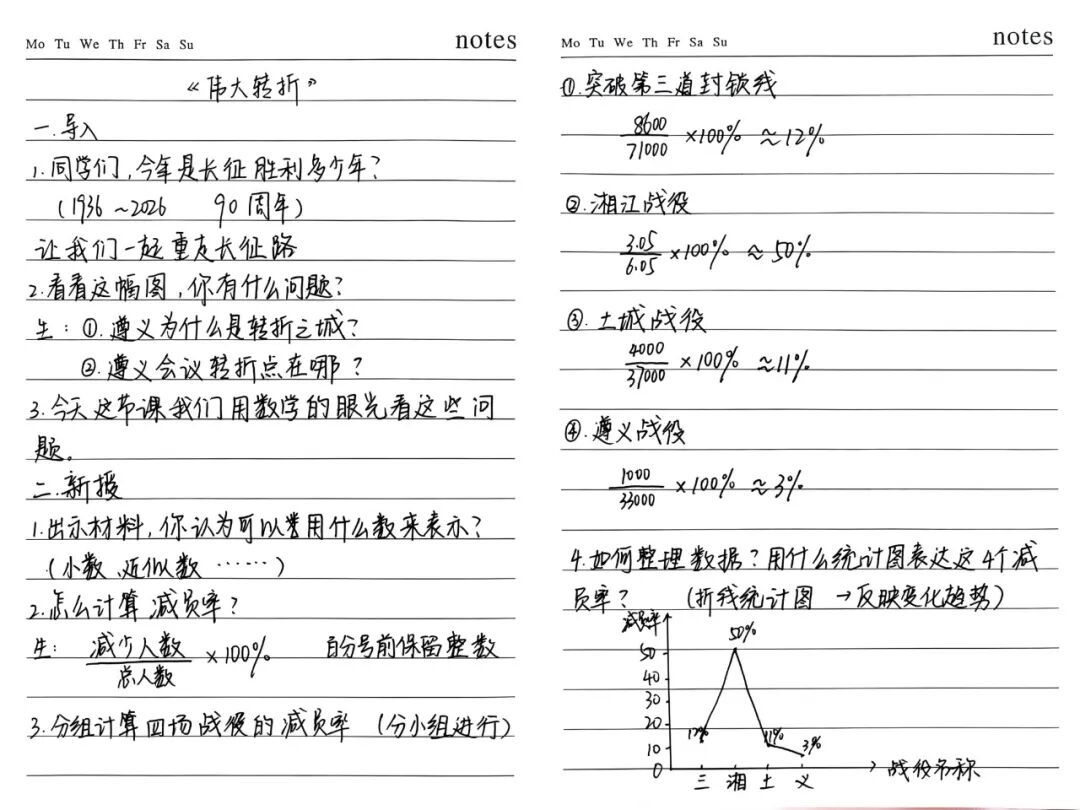 Mo Tu We Th Fr Sa Su
notes
《伟大转折》
一.导入
1.同学们,今年是长征胜利多少年?
(1936~2026 90周年)
让我们一起重走长征路
2.看看这幅图,你有什么问题?
生:①.遵义为什么是转折之城?
②.遵义会议转折点在哪?
3.今天这节课我们用数学的眼光看这些问
题。
二.新授
1.出示材料,你认为可以用什么数来表示?
(小数、近似数……)
2.怎么计算减员率?
生: 减少人数/总人数 ×100% 百分号前保留整数
3.分组计算四场战役的减员率 (分小组进行)
Mo Tu We Th Fr Sa Su
notes
①.突破第三道封锁线
8600/71000 ×100% ≈12%
②.湘江战役
3.05/6.05 ×100% ≈50%
③.土城战役
4000/37000 ×100% ≈11%
④.遵义战役
1000/33000 ×100% ≈3%
4.如何整理数据?用什么统计图表达这4个减
员率? (折线统计图 →反映变化趋势)
减员率
50%
50
40
30
20
12% 11% 3%
10
0
三 湘 土 义 战役名称